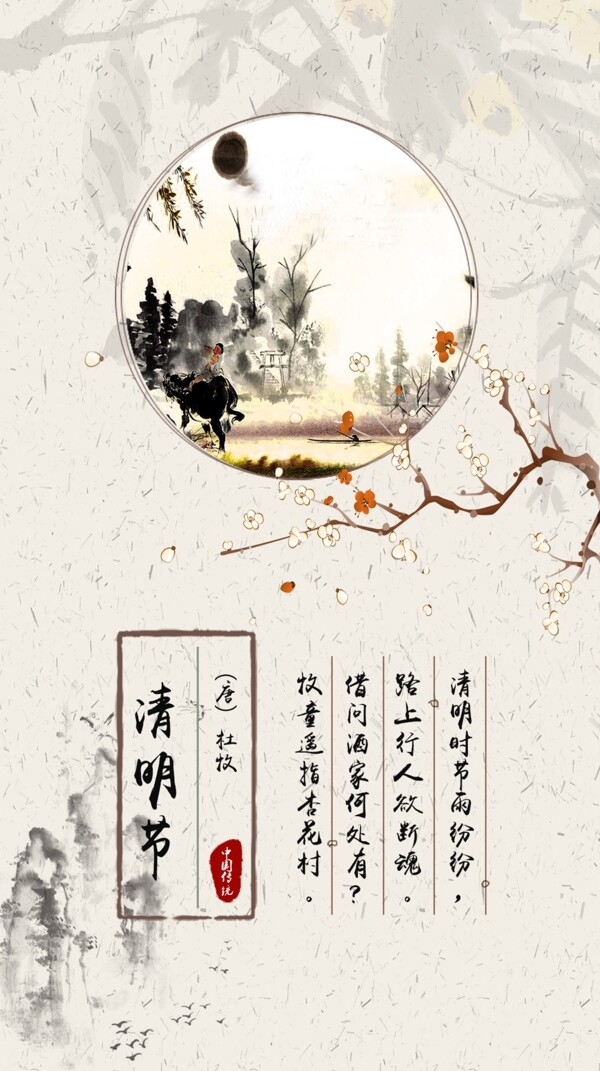 清明时节雨纷纷，
路上行人欲断魂。
借问酒家何处有？
牧童遥指杏花村。
（唐）杜牧
清明节
中国传统